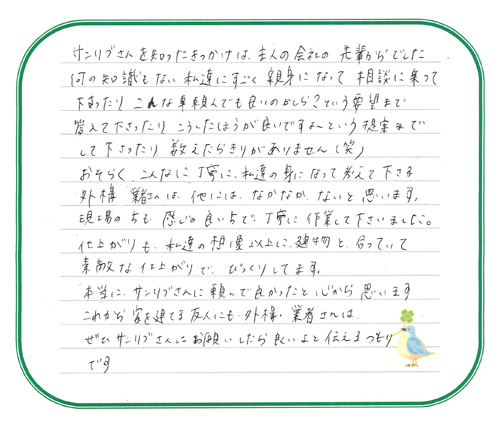 サンリブさんを知ったきっかけは、主人の会社の先輩からでした
何の知識もない私達にすごく親身になって相談に乗って
下さったり、こんな事頼んでも良いのかしら？という要望まで
答えて下さったり、こうしたほうが良いですよ〜という提案まで
して下さったり、数えたらきりがありません（笑）
おそらく、こんなに丁寧に、私達の身になって考えて下さる
外構業者さんは、他には、なかなかないと思います。
現場の方も感じの良い方で、丁寧に作業して下さいました。
仕上がりも、私達の想像以上に、建物と合っていて
素敵な仕上がりで、びっくりしてます。
本当に、サンリブさんに頼んで良かったと心から思います
これから家を建てる友人にも、外構業者さんは、
ぜひサンリブさんにお願いしたら良いよと伝えるつもり
です